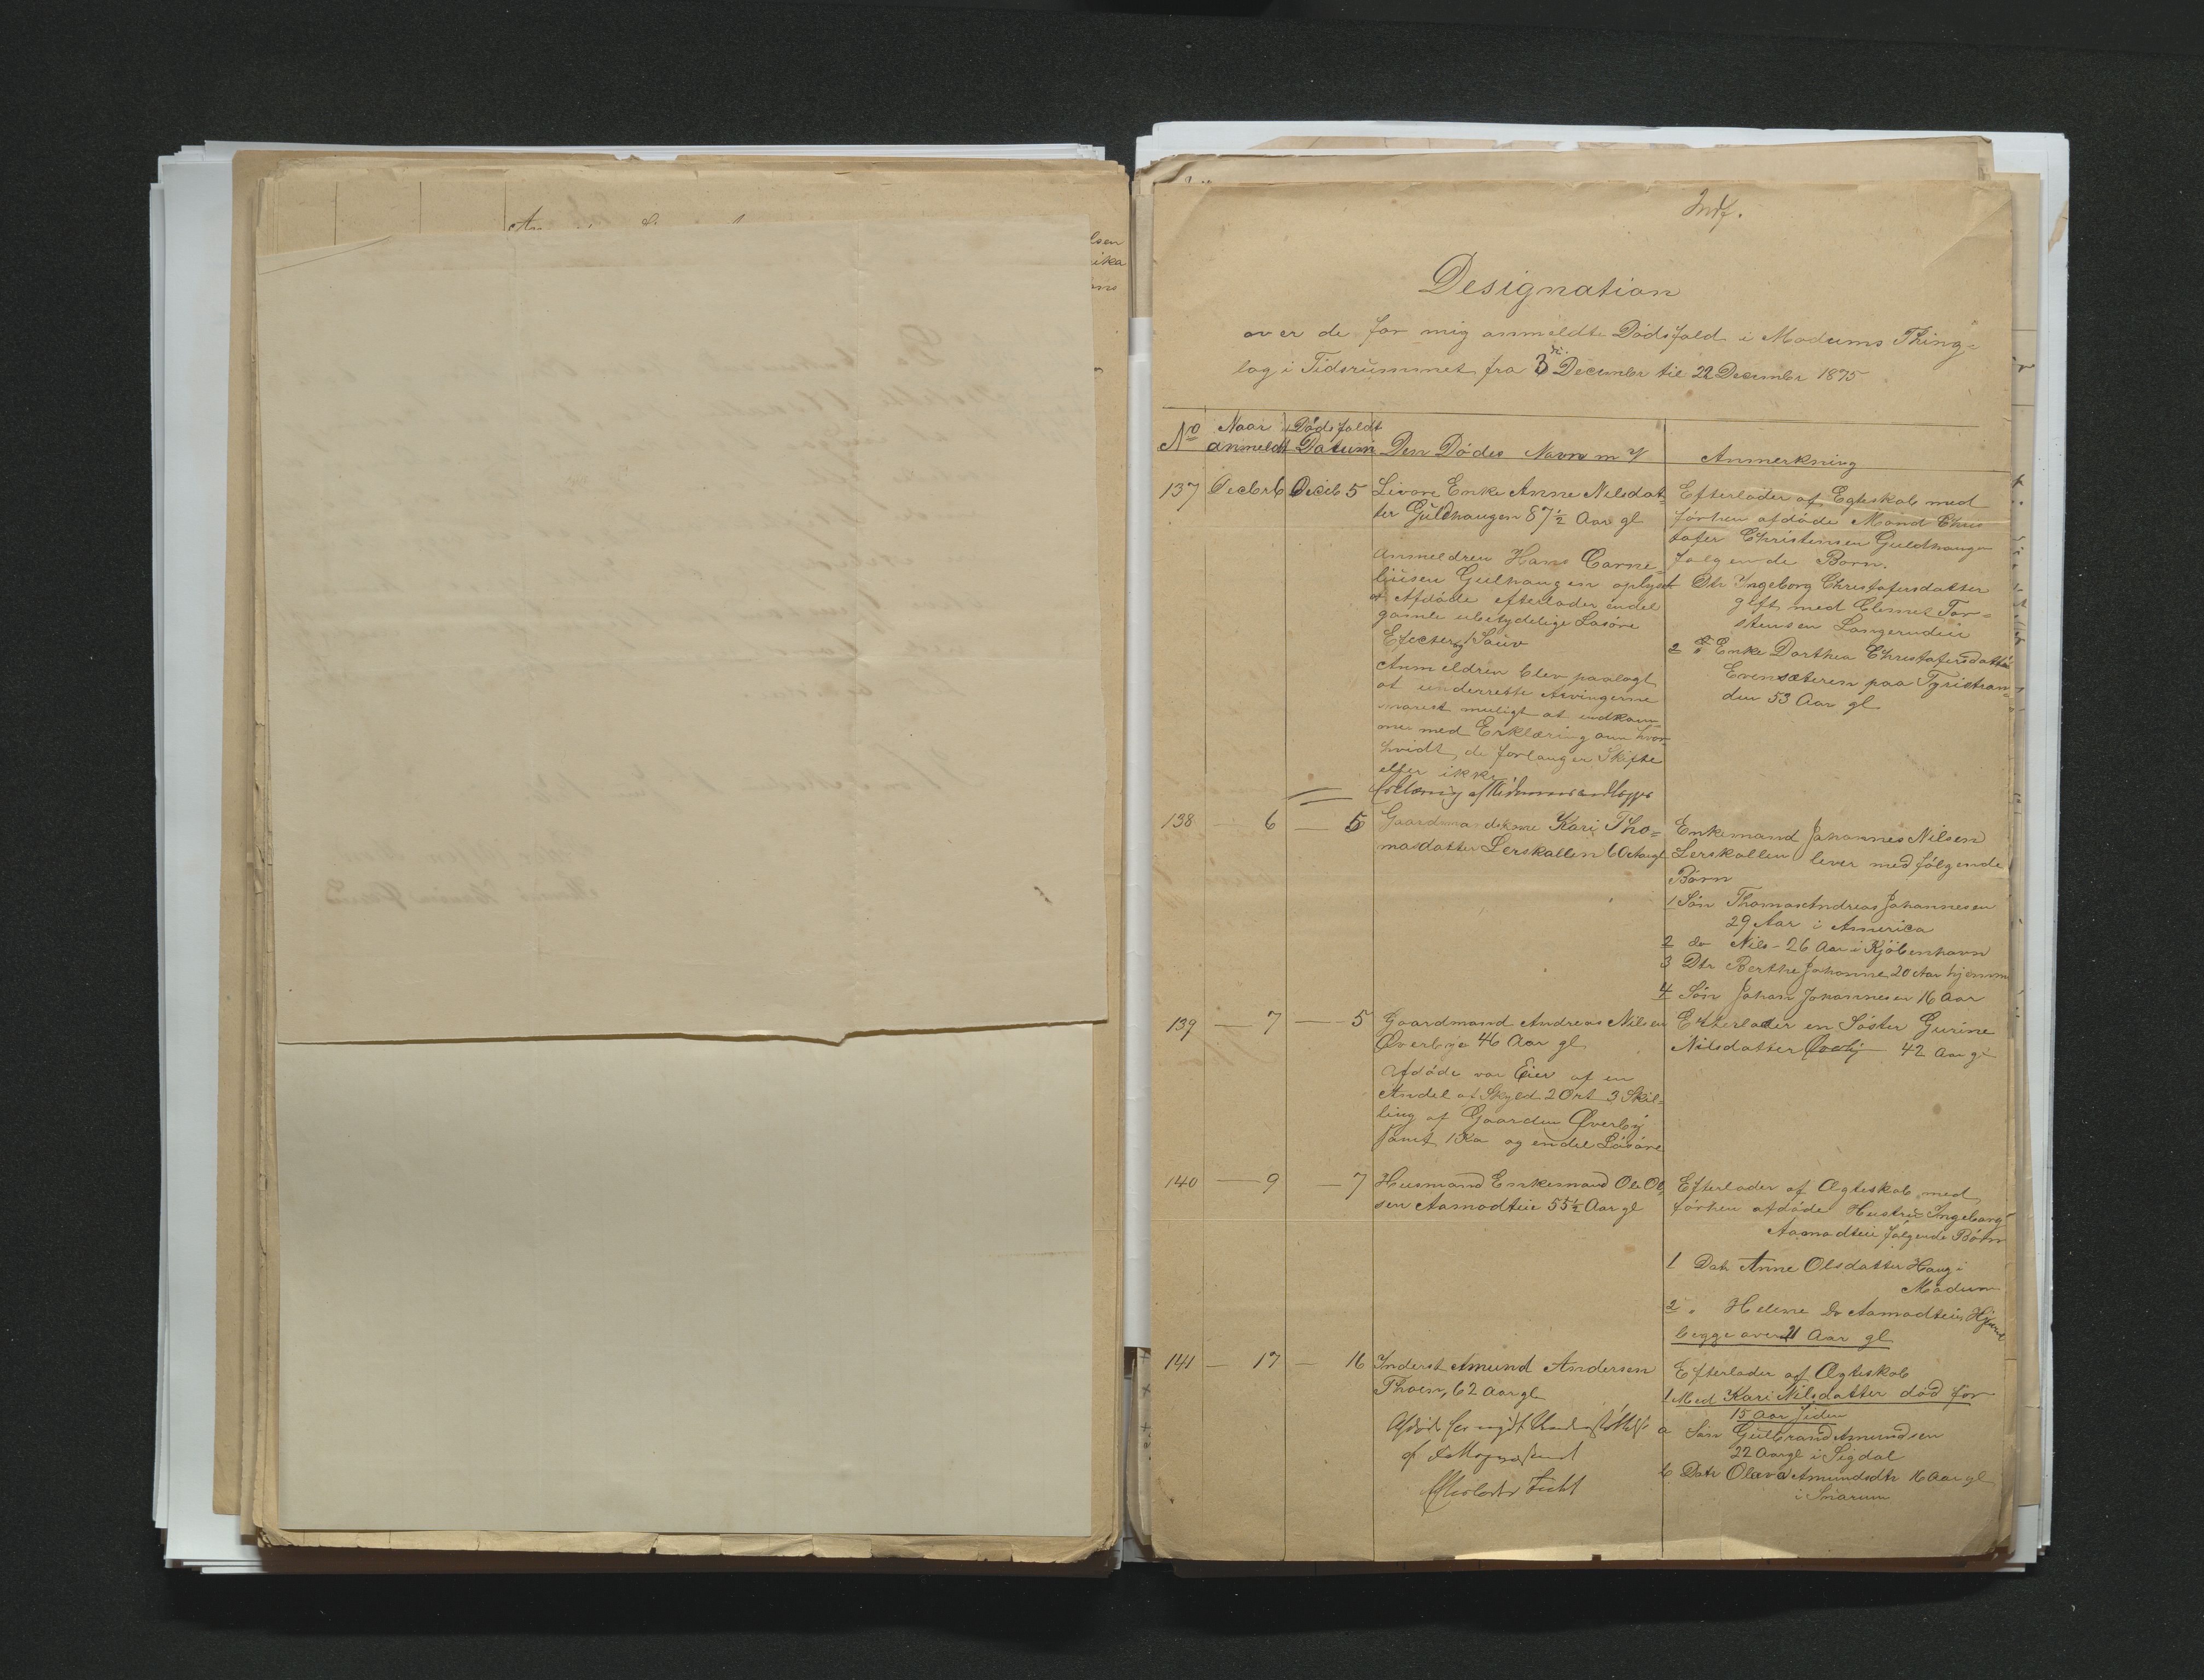 Indf.
Designation
over de for mig anmeldte Dödsfald i Modums Thing=
lag i Tidsrummet fra 3 December til 22 December 1875
No
Naar anmeldt
Dödsfaldt Datum
Den Dödes Navn m v
Anmerkning
137 Decbr 6 Decb 5 Livöre Enke Anne Nilsdat=
ter Guldhaugen 87½ Aar gl
Anmelderen Hans Corne=
liusen Gulhaugen oplyst
at Afdöde efterlader endel
gamle ubetydelige Lösöre
Efecter og 1 Sauv
Anmelderen blev paalagt
at underrette Arvingerne
snarest muligt at indkom=
me med Erklæring om hvor=
hvidt de forlanger Skifte
eller ikke
Efterlader af Egteskab med
förhen afdöde Mand Chris
tofer Christensen Guldhaugen
fölgende Börn.
Dtr Ingeborg Christofersdatter
gift med Clemet Tor=
stensen Langerudeie
2 Enke Dorthea Christofersdatter
Evensæteren paa Tyristran=
den 53 Aar gl
138 — 6 — 5 Gaardmandskone Kari Tho=
masdatter Lerskallen 60 Aar gl
Enkemand Johannes Nilsen
Lerskallen lever med fölgende
Börn
1 Sön Thomas Andreas Johannesen
29 Aar i America
2 do Nils - 26 Aar i Kjöbenhavn
3 Dtr Berthe Johanne 20 Aar hjemme
4 Sön Johan Johannesen 16 Aar
139 — 7 — 5 Gaardmand Andreas Nilsen
Øverbye 46 Aar gl
Afdöde var Eier af en
Andel af Skyld 2 Ort 3 Skil=
ling af Gaarden Øverby
samt 1 Ko og endel Lösöre
Efterlader en Söster Gurine
Nilsdatter Øverby 42 Aar gl
140 — 9 — 7 Husmand Enkemand Ole Ol=
sen Aamodteie 55½ Aar gl
Efterlader af Ægteskab med
förhen afdöde Hustru Ingeborg
Aamodteie fölgende Börn
1 Datr Anne Olsdatter Haug i
Modum
2 " Helene do Aamodteie
begge over 21 Aar gl
141 — 17 — 16 Inderst Amund Andersen
Thoen, 62 Aar gl
Efterlader af Ægteskab
1 Med Kari Nilsdatter död for
15 Aar siden
a Sön Gulbrand Amundsen
22 Aar gl i Sigdal
b Datr Olava Amundsdtr 16 Aar gl
i Snarum